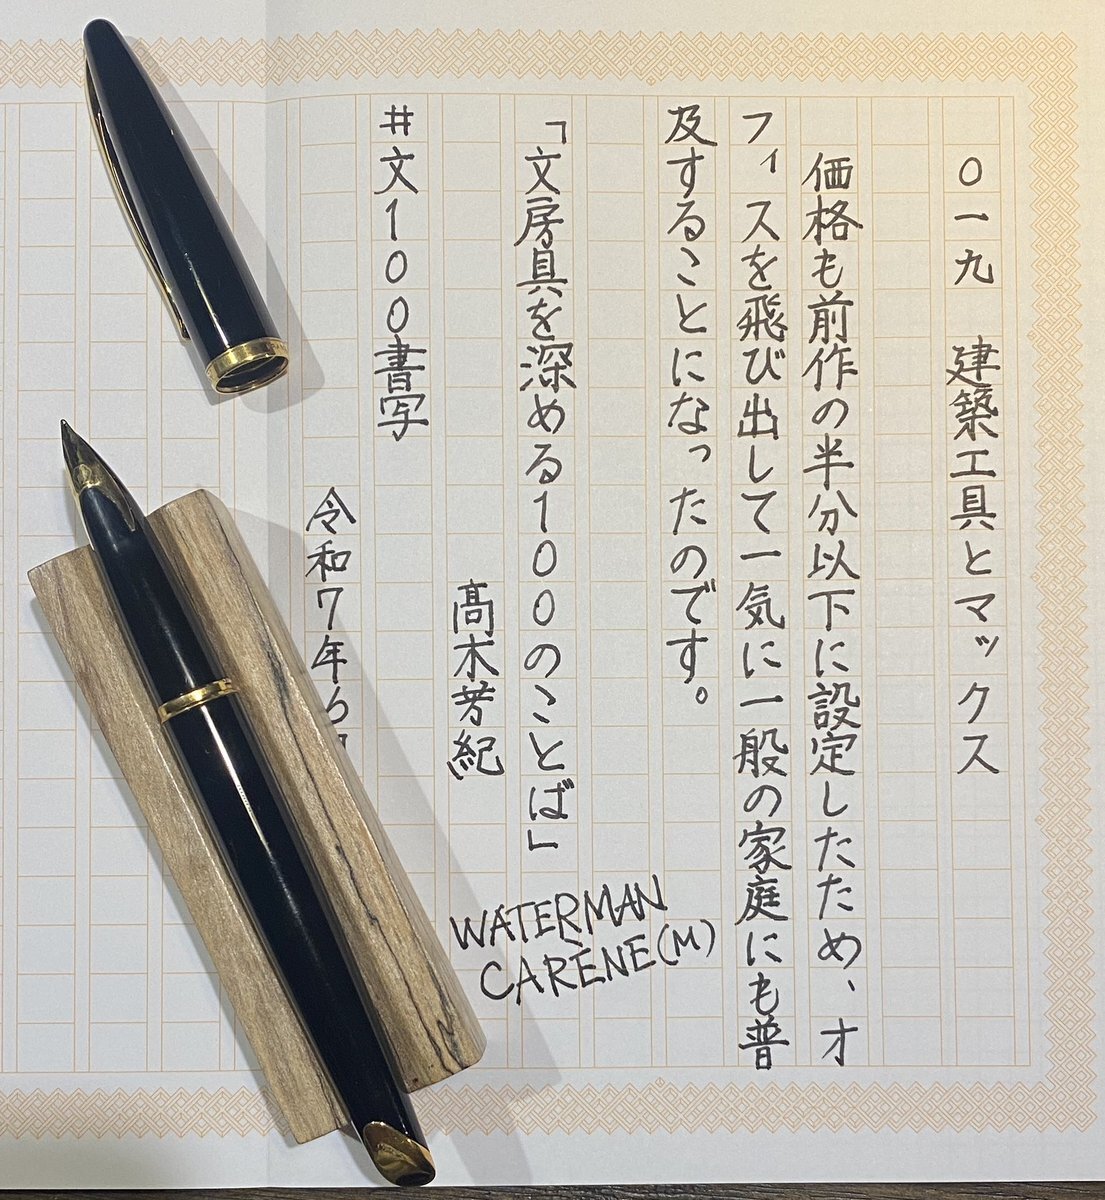 〇一九　建築工具とマックス
価格も前作の半分以下に設定したため、オ
フィスを飛び出して一気に一般の家庭にも普
及することになったのです。
「文房具を深める１００のことば」
髙木芳紀
＃文１００書写
令和７年６月
WATERMAN
CARÈNE(M)